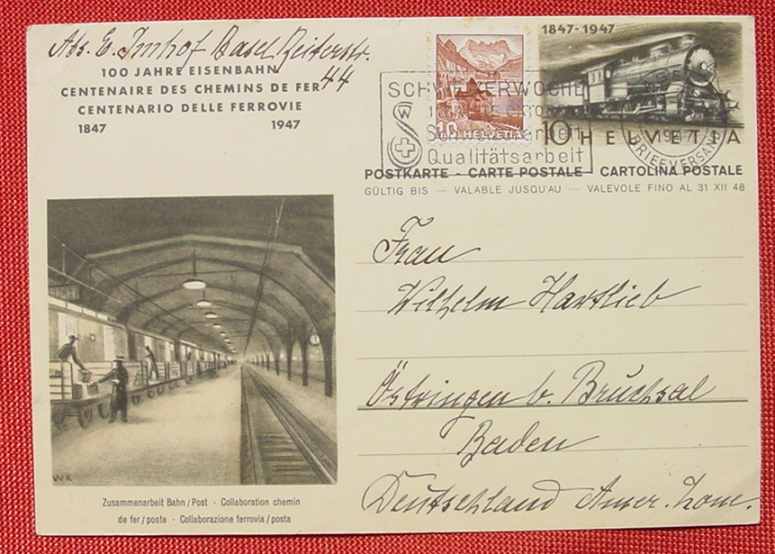 Abs. E. Imhof Basel Reiterstr.
44
100 JAHRE EISENBAHN
CENTENAIRE DES CHEMINS DE FER
CENTENARIO DELLE FERROVIE
1847 1947
SCHWEIZERWOCHE
Schweizer
Qualitätsarbeit
10 HELVETIA
1847-1947
10 HELVETIA
BRIEFVERSAND
POSTKARTE - CARTE POSTALE - CARTOLINA POSTALE
GÜLTIG BIS — VALABLE JUSQU'AU — VALEVOLE FINO AL 31 XII 48
Frau
Wilhelm Hartlieb
Östringen b. Bruchsal
Baden
Deutschland Amer. Zone.
WK
Zusammenarbeit Bahn/Post - Collaboration chemin
de fer/poste - Collaborazione ferrovia/posta